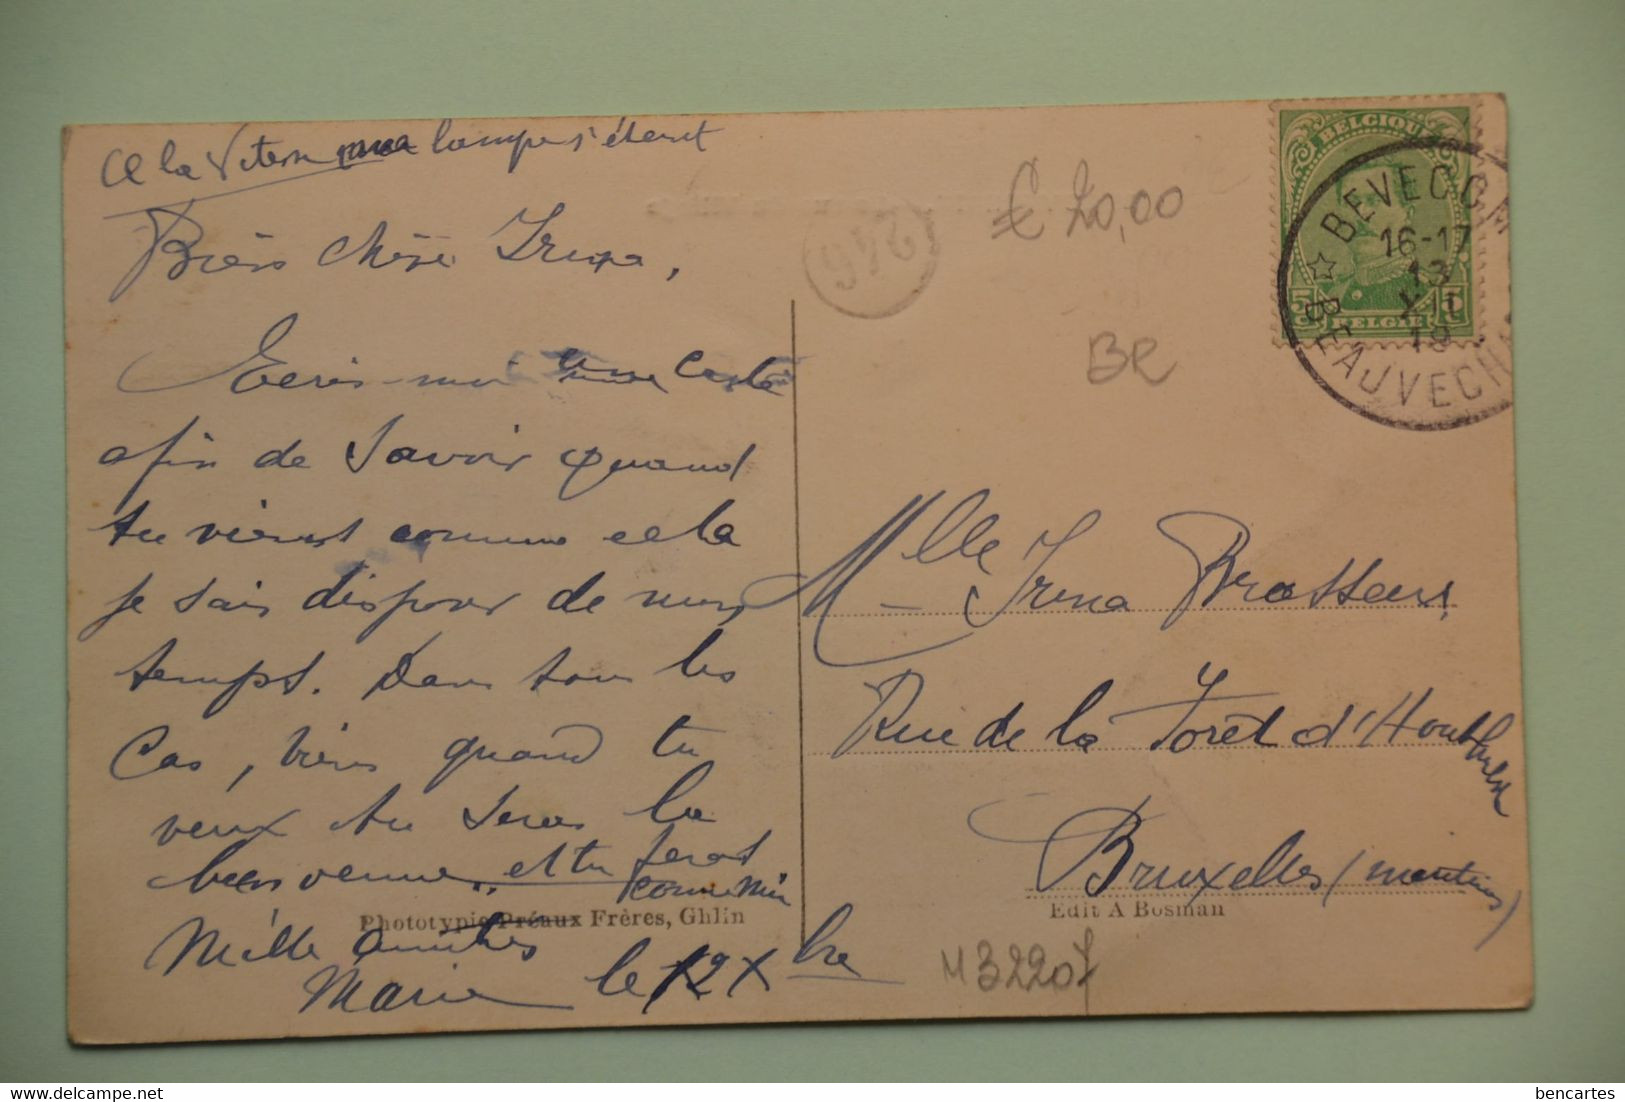 A la lampe s'éteint
Bien chère Irma,
Ecris-moi une carte
afin de savoir quand
tu viens comme cela
je sais disposer de mon
temps. Dans tous les
cas, viens quand tu
veux tu seras la
bienvenue et tu feras
Mille amitiés
Marie le 12 Xbre
Phototypie Préaux Frères, Ghlin
246
€ 20,00
BR
BELGIQUE
5c
BELGIE
BEVECOM
16-17
13
XII
19
BEAUVECHA
Mlle Irma Brasseur
Rue de la Forêt d'Houthulst
Bruxelles (maritime)
Edit A Bosman
M32207
bencartes